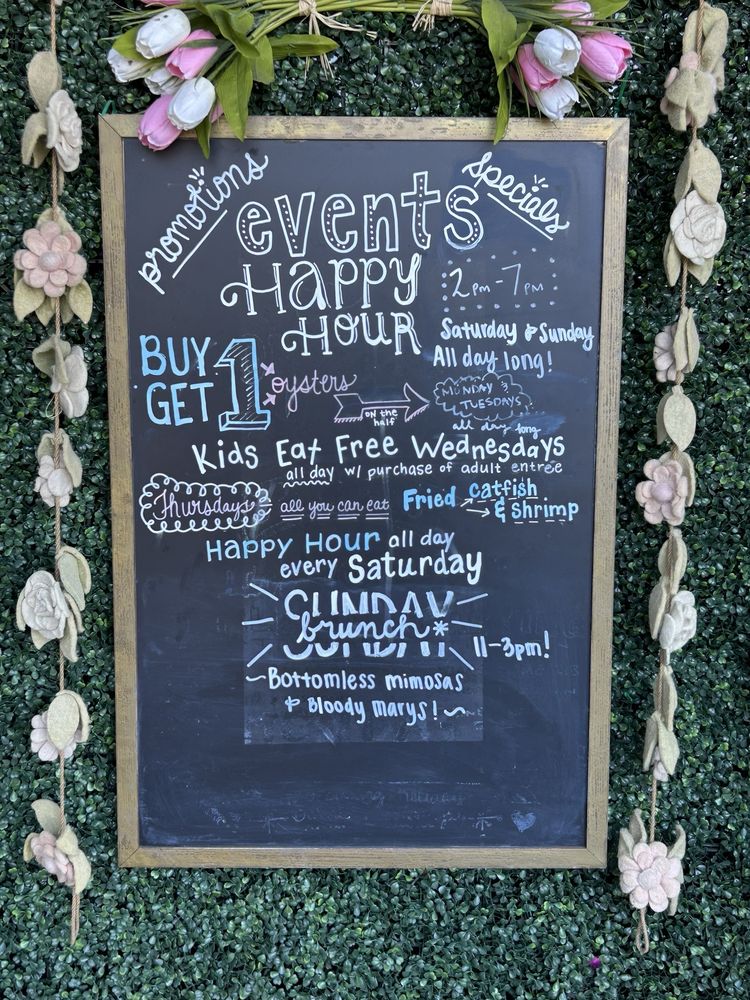 promotions
specials
events
Happy Hour
2pm-7pm
Saturday & Sunday
All day long!
BUY 1
GET 1
oysters
on the half
MONDAY &
TUESDAYS
all day long
Kids Eat Free Wednesdays
all day w/ purchase of adult entree
Thursdays all you can eat Fried catfish
& Shrimp
Happy Hour all day
every Saturday
SUNDAY
brunch* 11-3pm!
~Bottomless mimosas
& Bloody Marys! ~